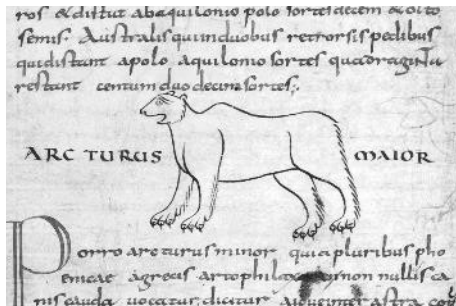 ros & distat ab aquilonio polo sortes decem & octo
semis. Australis quin duobus retrorsis pedibus
qui distant apolo aquilonio sortes quadraginta
restant centum duodecim sortes;
ARCTURUS MAIOR
Porro arcturus minor quia pluribus pho
enicae agrecis artophilax non nullis ca
nis cauda uocatur dicitur